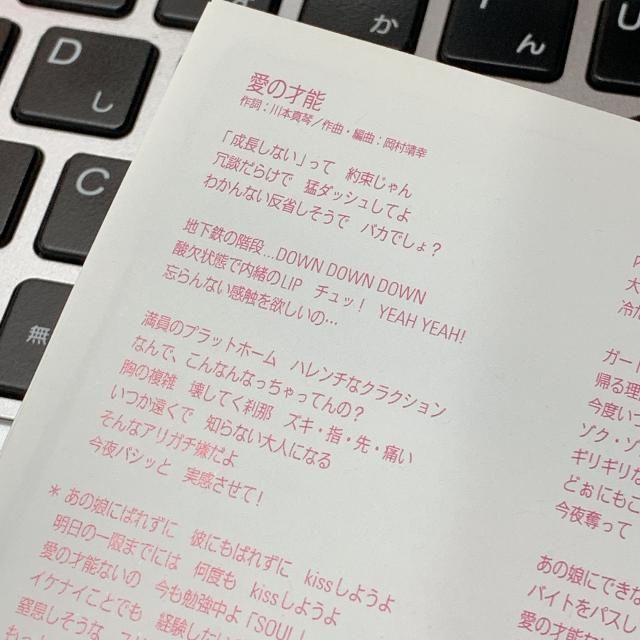 D
し
C
か
Y
ん
U
無
愛の才能
作詞：川本真琴／作曲・編曲：岡村靖幸
「成長しない」って 約束じゃん
冗談だらけで 猛ダッシュしてよ
わかんない反省しそうで バカでしょ？
地下鉄の階段…DOWN DOWN DOWN
酸欠状態で内緒のLIP チュッ！ YEAH YEAH!
忘らんない感触を欲しいの…
満員のプラットホーム ハレンチなクラクション
なんで、こんなんなっちゃってんの？
胸の複雑 壊してく刹那 ズキ・指・先・痛い
いつか遠くで 知らない大人になる
そんなアリガチ嫌だよ
今夜バシッと 実感させて！
＊あの娘にばれずに 彼にもばれずに kissしようよ
明日の一限までには 何度も kissしようよ
愛の才能ないの 今も勉強中よ「SOUL」
イケナイことでも 経験したい
窒息しそうな
大
冷
ガード
帰る理
今度いつ
ゾク・ソ
ギリギリな
どぉにもこ
今夜奪って
あの娘にできな
バイトをパスし
愛の才能